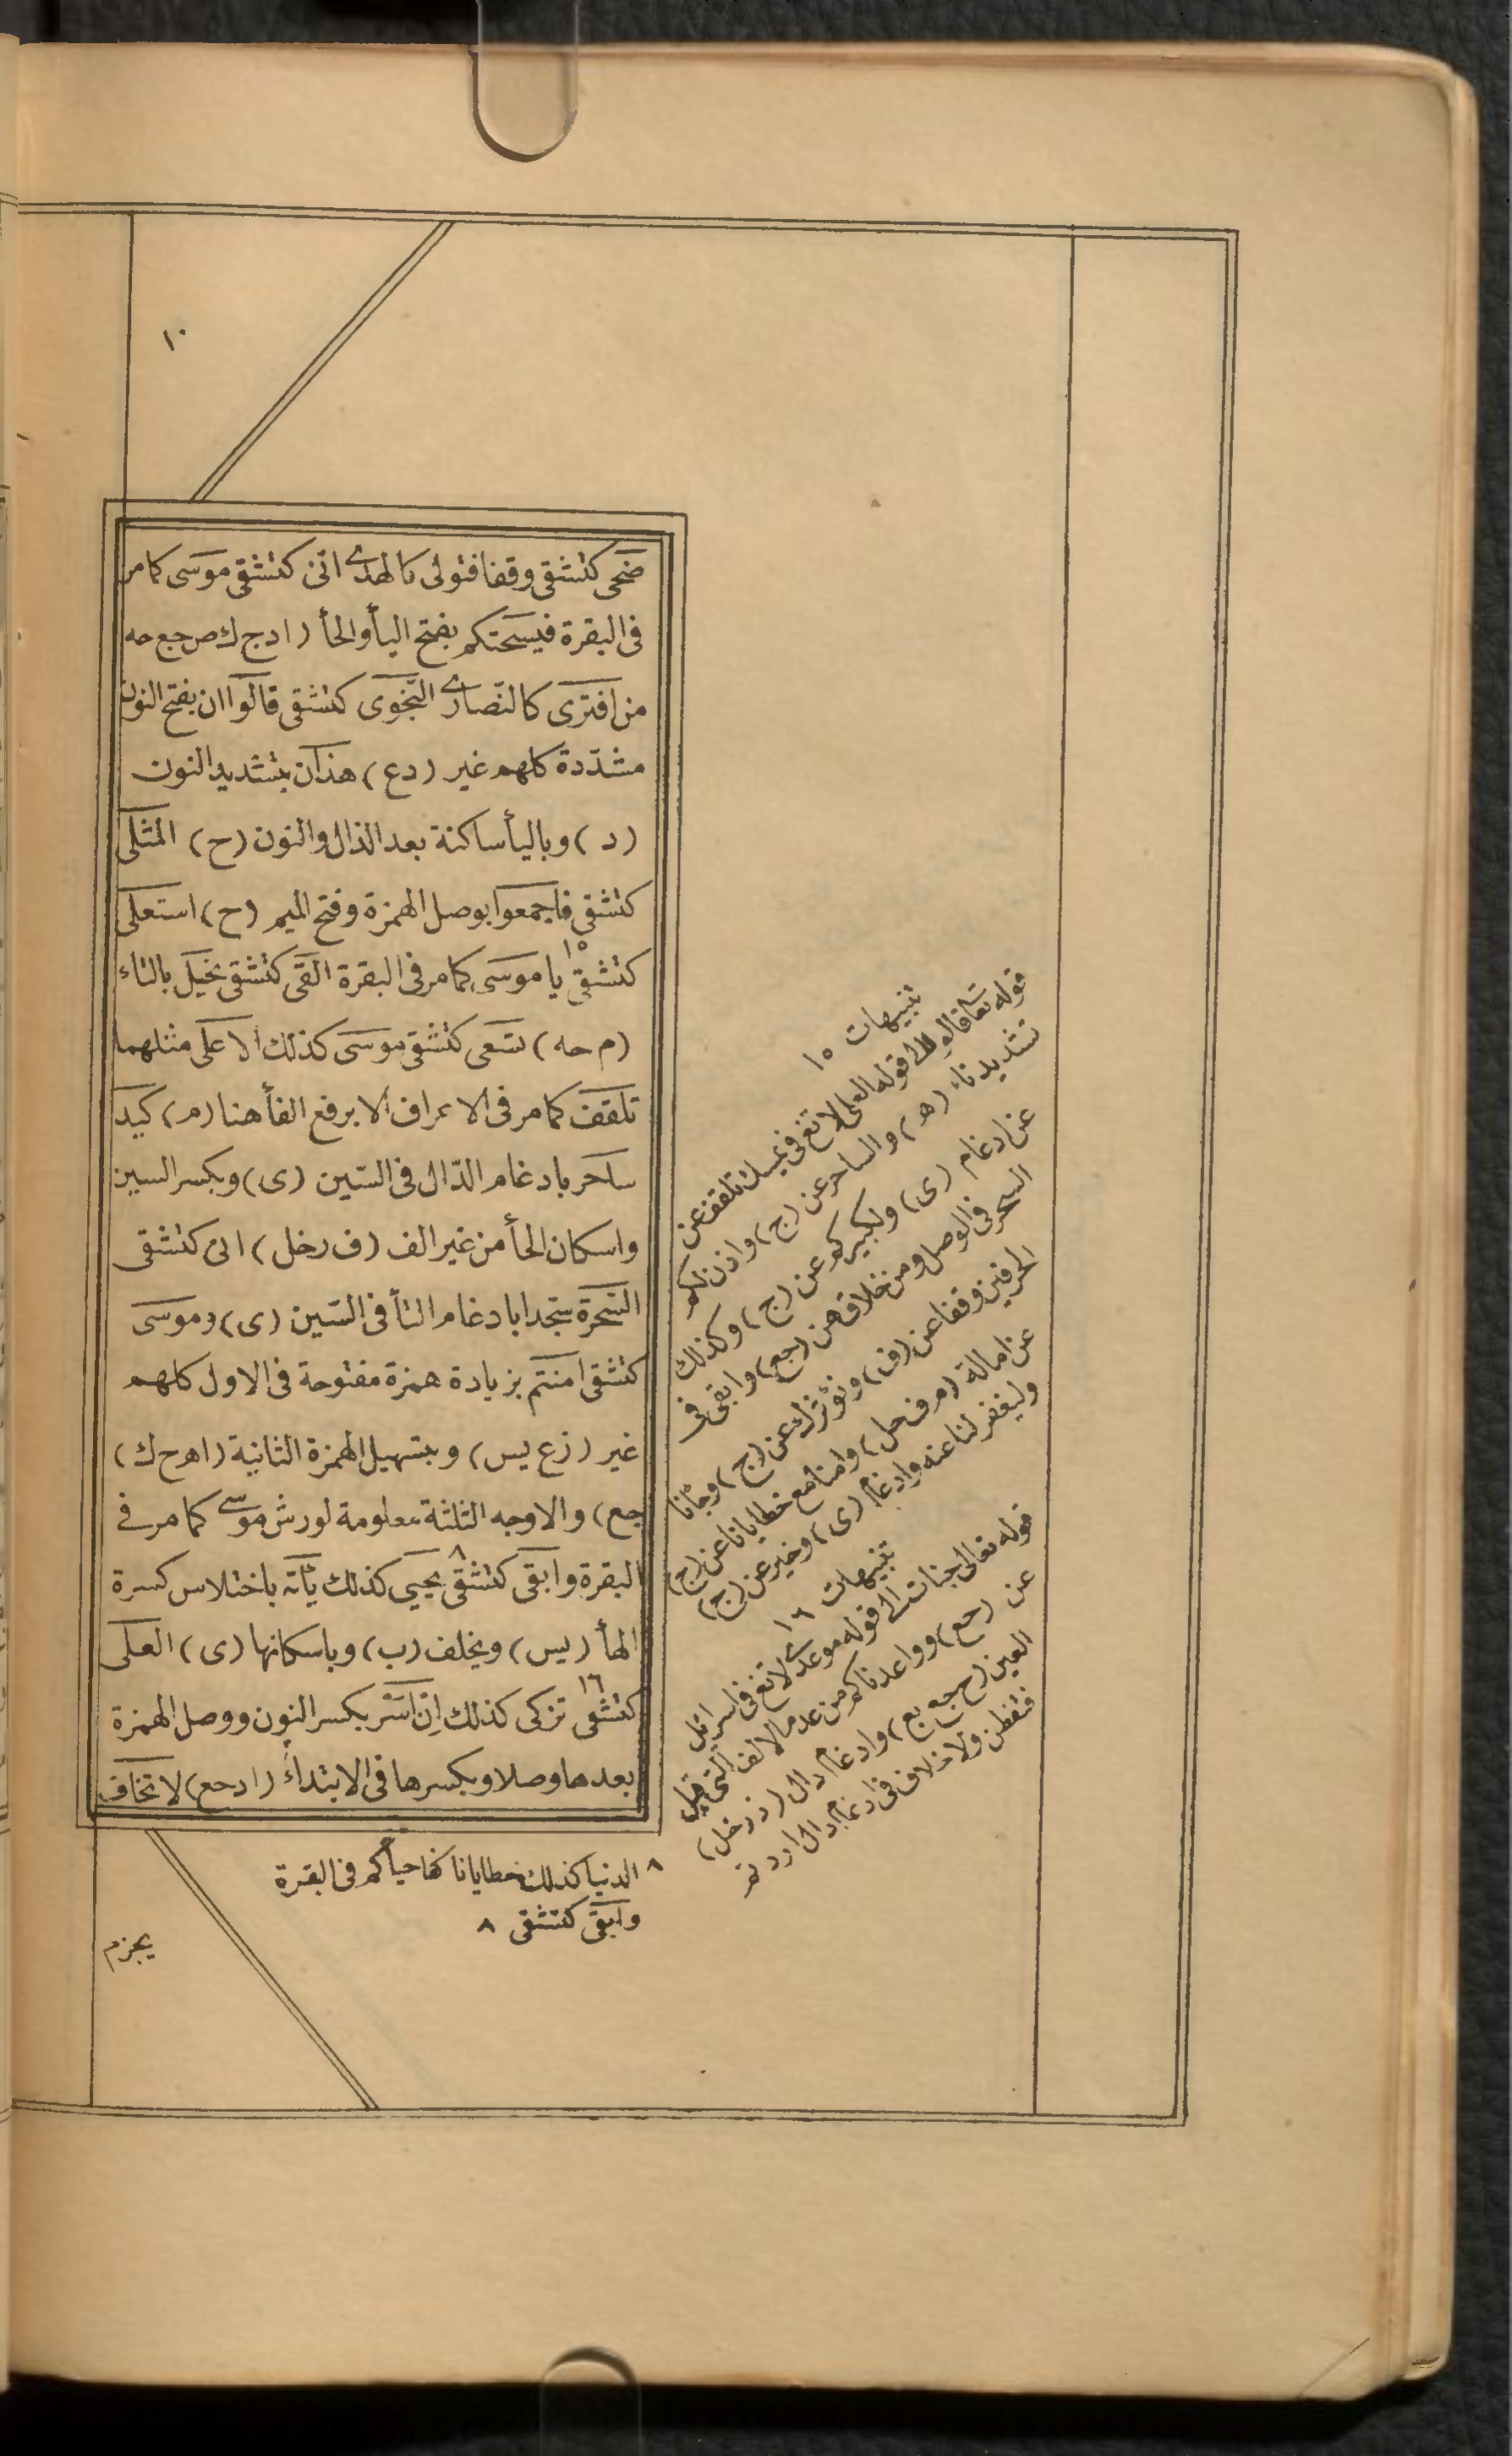 ١٠
ضحى كتشقى وقفا فتولى كالهدى اتى كتشقى موسى كما مر
فى البقرة فيسحتكم بفتح اليأ والحأ (ادج ك ص جع حه
من افترى كالنصارى النجوى كتشقى قالوا ان بفتح النون
مشددة كلهم غير (دع) هذان بتشديد النون
(د) وباليأ ساكنة بعد الذال والنون (ح) المثلى
كتشقى فاجمعوا بوصل الهمزة وفتح الميم (ح) استعلى
كتشقى ١٥ يا موسى كما مر فى البقرة القى كتشقى يخيل بالتاء
(م حه) تسعى كتشقى موسى كذلك الاعلى مثلهما
تلقف كما مر فى الاعراف الا برفع الفأ هنا (م) كيد
ساحر بادغام الدال فى السين (ى) وبكسر السين
واسكان الحأ من غير الف (ف رخل) اتى كتشقى
السحرة سجدا بادغام التأ فى السين (ى) وموسى
كتشقى امنتم بزيادة همزة مفتوحة فى الاول كلهم
غير (زع يس) وبتسهيل الهمزة الثانية (اهح ك)
جع) والاوجه الثلثة معلومة لورش موسى كما مر فى
البقرة وابقى كتشقى ٨ يحيى كذلك يأته باختلاس كسرة
الهأ (يس) وبخلف (ب) وباسكانها (ى) العلى
كتشقى ١٦ تزكى كذلك ان اسر بكسر النون ووصل الهمزة
بعدها وصلا وبكسرها فى الابتدأ (ادحع) لا تخاف
٨ الدنيا كذلك خطايانا كفاحياكم فى البقرة
وابقى كتشقى ٨
يجزم
تنبيهات ١٥
قوله تعا قالو الى قوله العلى لا تغ فى يمسك تلقف عن
تشديد تاء (ه) والساحر عن (ج) واذن لكم
عن ادغام (ى) ولكبيركم عن (ج) وكذلك
السحر فى الوصل ومن خلاف عن (جع) وابقى فى
الحرفين وقفا عن (ف) ونؤثرك عن (ج) وجأنا
عن امالة (م ف حل) وامنا مع خطايانا عن (ج)
وليغفر لنا عنه وادغام (ى) وخير عن (ج)
تنبيهات ١٦
قوله تعالى جنات الى قوله موعدى لا تغ فى اسرائل
عن (جع) وواعدناكم من عدم الالف التى قبل
العين (ح جع يع) وادغام دال (ذ رخل)
فتفطن ولا خلاف فى ادغام دال